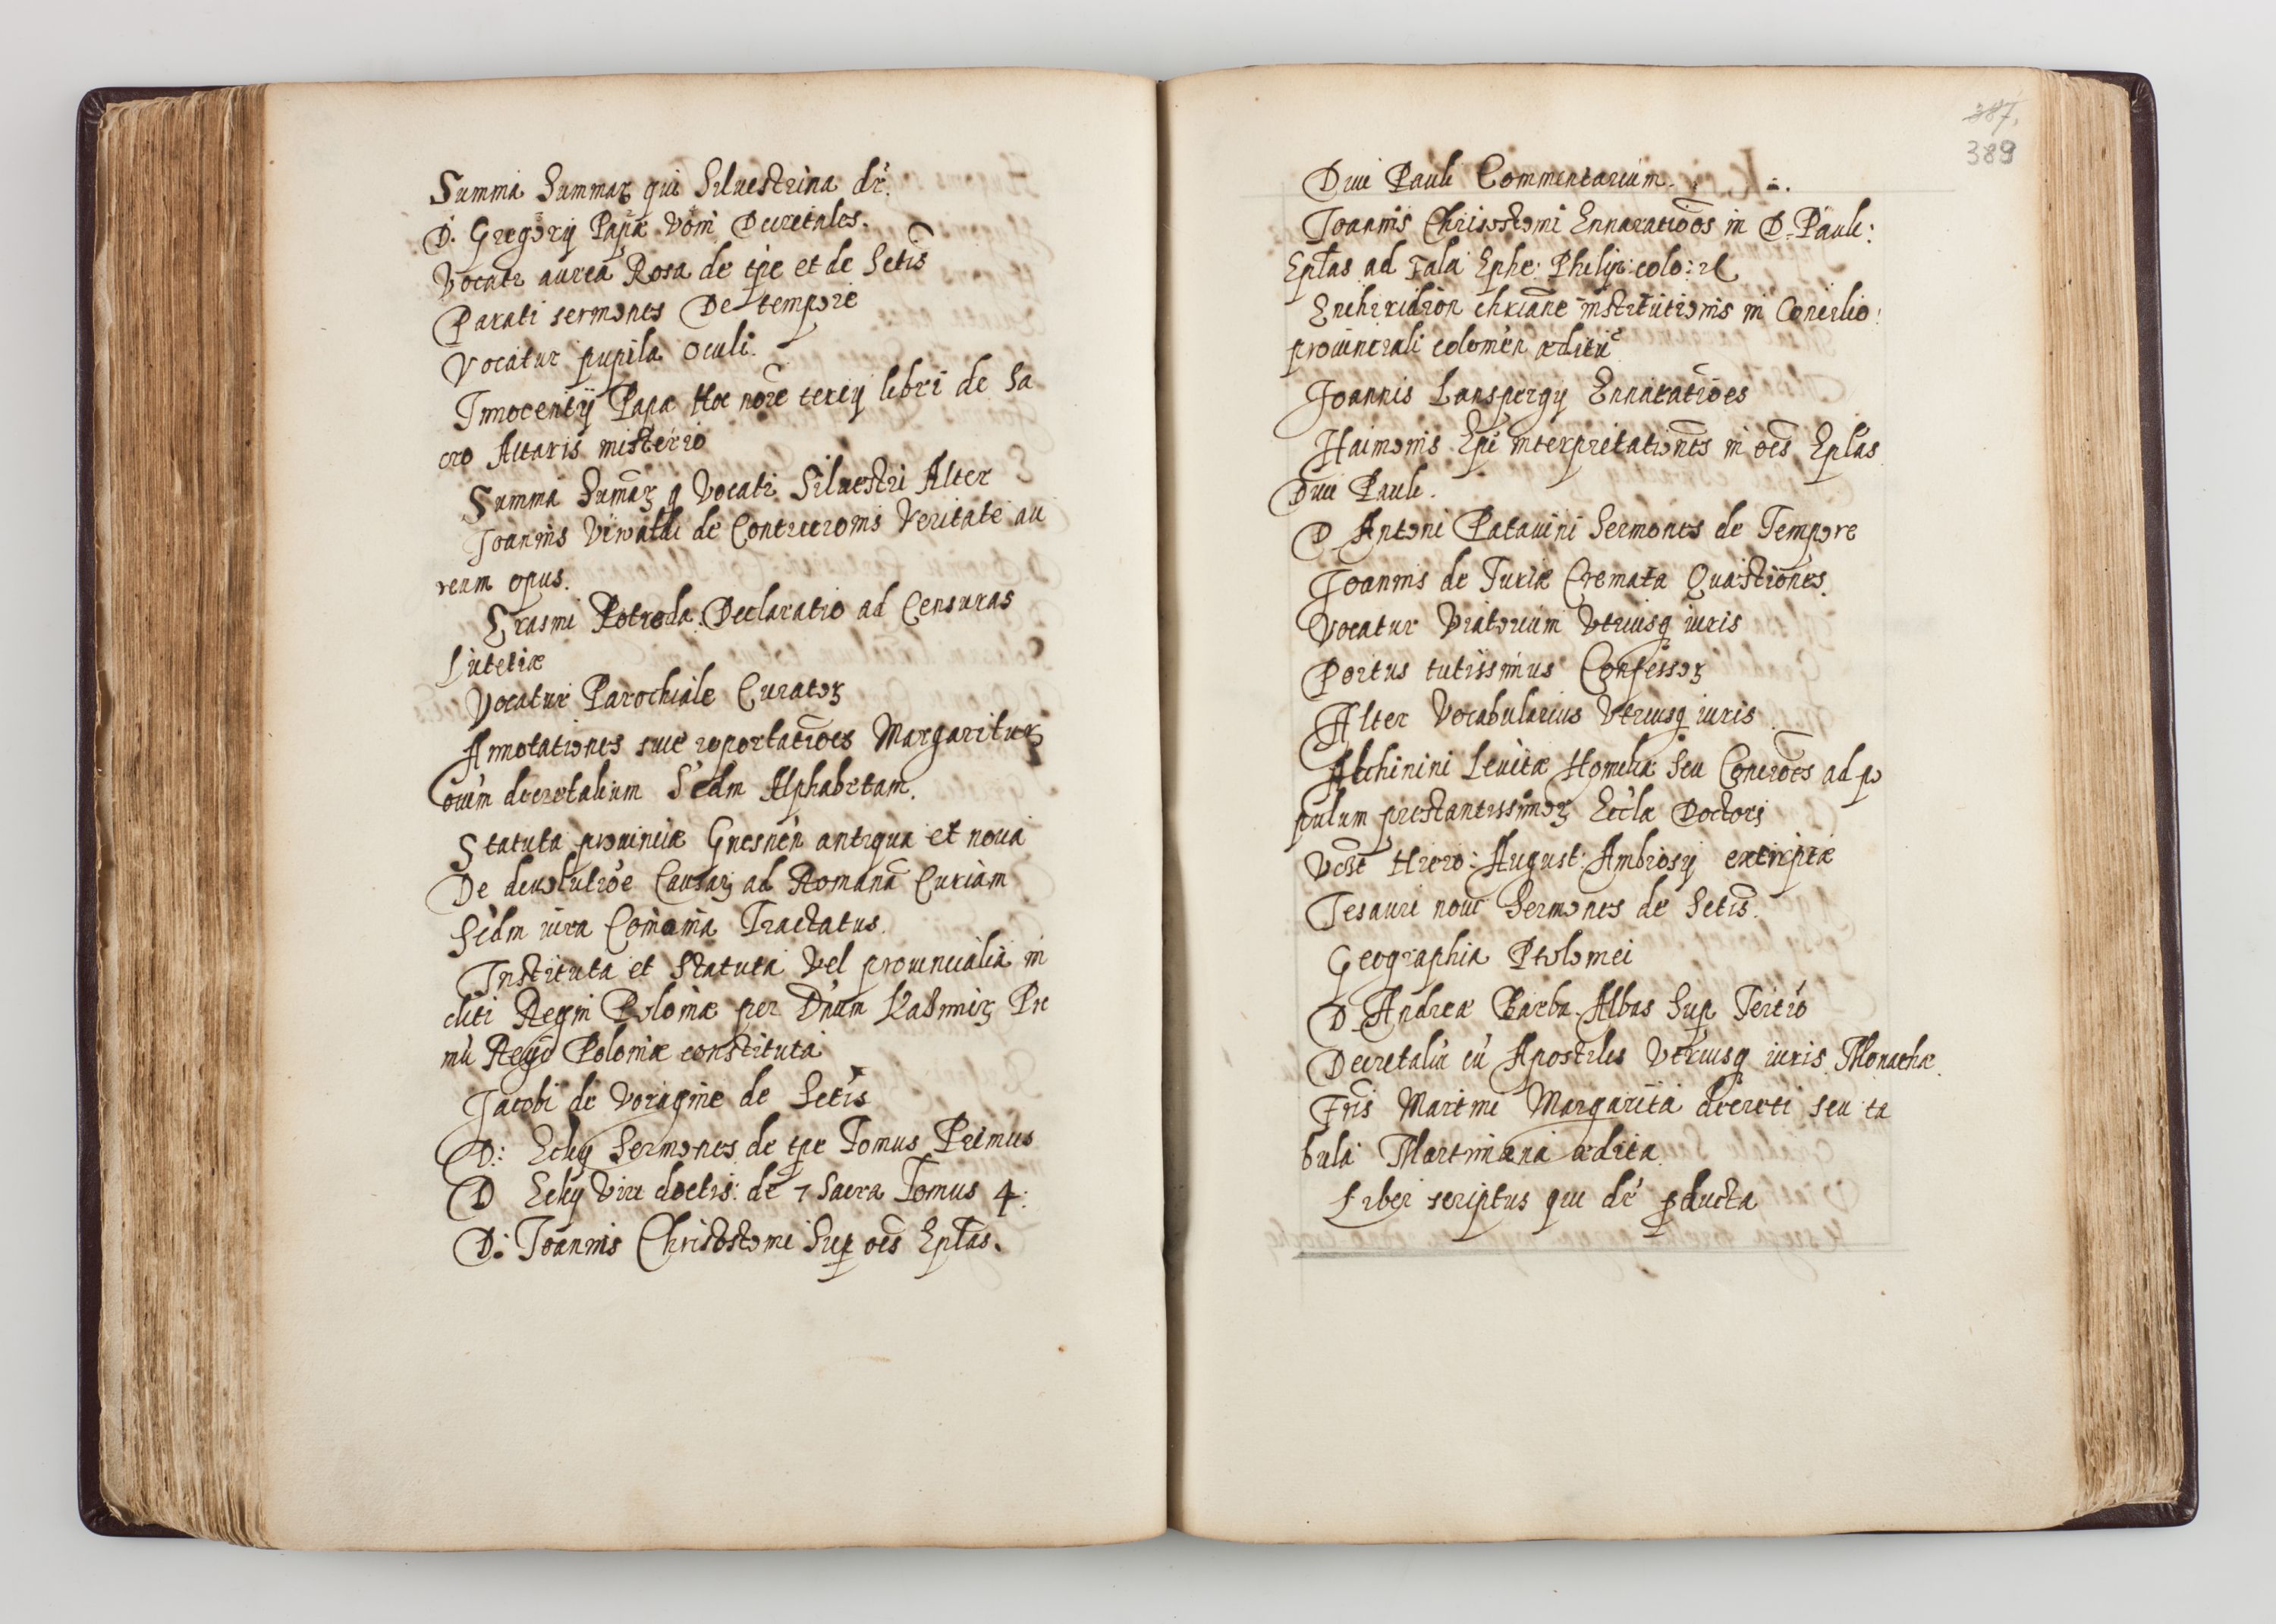 Summa Summaꝝ qui Siluestrina dr̄.
D. Gregorij Papæ Decretales.
Vocatr aurea Rosa de tp̄e et de Sctis
Parati sermones De tempore
Vocatur pupila oculi.
Innocentij Papæ Hoc noīe tercij libri de Sa
cro Altaris misterio
Summa Sumaꝝ q Vocatr Siluestri Alter
Joannis Viwaldi de Contricionis Veritate au
reum opus.
Erasmi Rotroda. Declaratio ad Censuras
Lutetiæ
Vocatur Parochiale Curatoꝝ
Annotationes siue reportatiōes Margarituꝝ
oium decretalium Scdm Alphabetam.
Statuta prouinciæ Gnesnen antiqua et noua
De deuolutiōe Causaꝝ ad Romanā Curiam
Scdm iura Comunia Tractatus.
Instituta et Statuta Vel prouincialia in
cliti Regni Poloniæ per Dnum Kasimiꝝ Pri
mū Regē Poloniæ constituta
Jacobi de Voragine de Sctis
D: Eckij Sermones de tp̄e Tomus Primus
D Eckij Viri doctis: de 7 Sacra Tomus 4:
D: Joannis Chrisostomi Sup oēs Epłas.
387.
389
Diui Pauli Commentarium.
Joannis Chrisostomi Ennaratiōos in D. Pauli:
Epłas ad Gala Ephe: Philip: colo:
Enchiridion chriane institutionis in Concilio:
prouinciali colonien æditū
Joannis Lanspergij Ennaratiōes
Haimonis Epi interpretationes in oēs Epłas
Diui Pauli.
D Antoni Patauini Sermones de Tempore
Joannis de Turiæ Cremata Quæstiones.
Vocatur Viatorium Vtriusq iuris
Portus tutissimus Confessoꝝ
Alter Vocabularius Vtriusq iuris.
Alchinini Leuitæ Homeliæ Seu Conciōes ad po
pulum prestantissimoꝝ Eccla Doctorꝫ
Hiero: August: Ambrosij
Tesauri noui Sermones de Sctis.
Geographia Ptolomei
D. Andreæ Barba. Albas Sup Tertio
Decretaliū cū Apostiles Vtriusq iuris. Monachæ.
Fris Martini Margarita decreti seu ta
bula Martiniana ædita.
Liber scriptus qui dr̄ ꝑducta